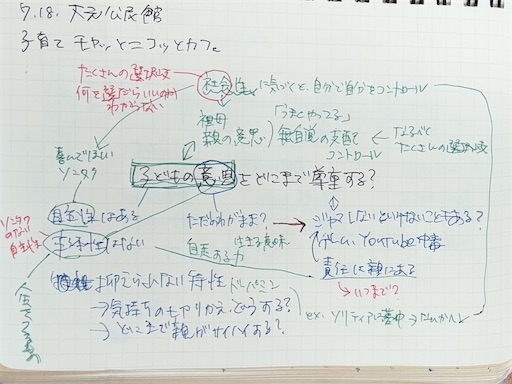 7.18. 大元公民館
子育て チャッとニコッとカフェ。
たくさんの選択肢
何を選だらいいのか
わからない
社会性に気づくと、自分で自分をコントロール
祖母
親の意思
「うまくやってる」
無自覚の支配
コントロール
なるべく
たくさんの選択肢
喜んでほしい
ソンタク
子どもの意思をどこまで尊重する?
ソンタク
のない
自主性
自主性はある
主体性はない
ただのわがまま?
生きる意味
自走る力
ジャマしないといけないこともある?
ゲーム、YouTube
責任は親にある
いつまで?
抑えられない特性 ドーパミン
→気持ちのきりかえ、どうする?
→どこまで親がサイハイする?
ex. ソリティアに夢中→